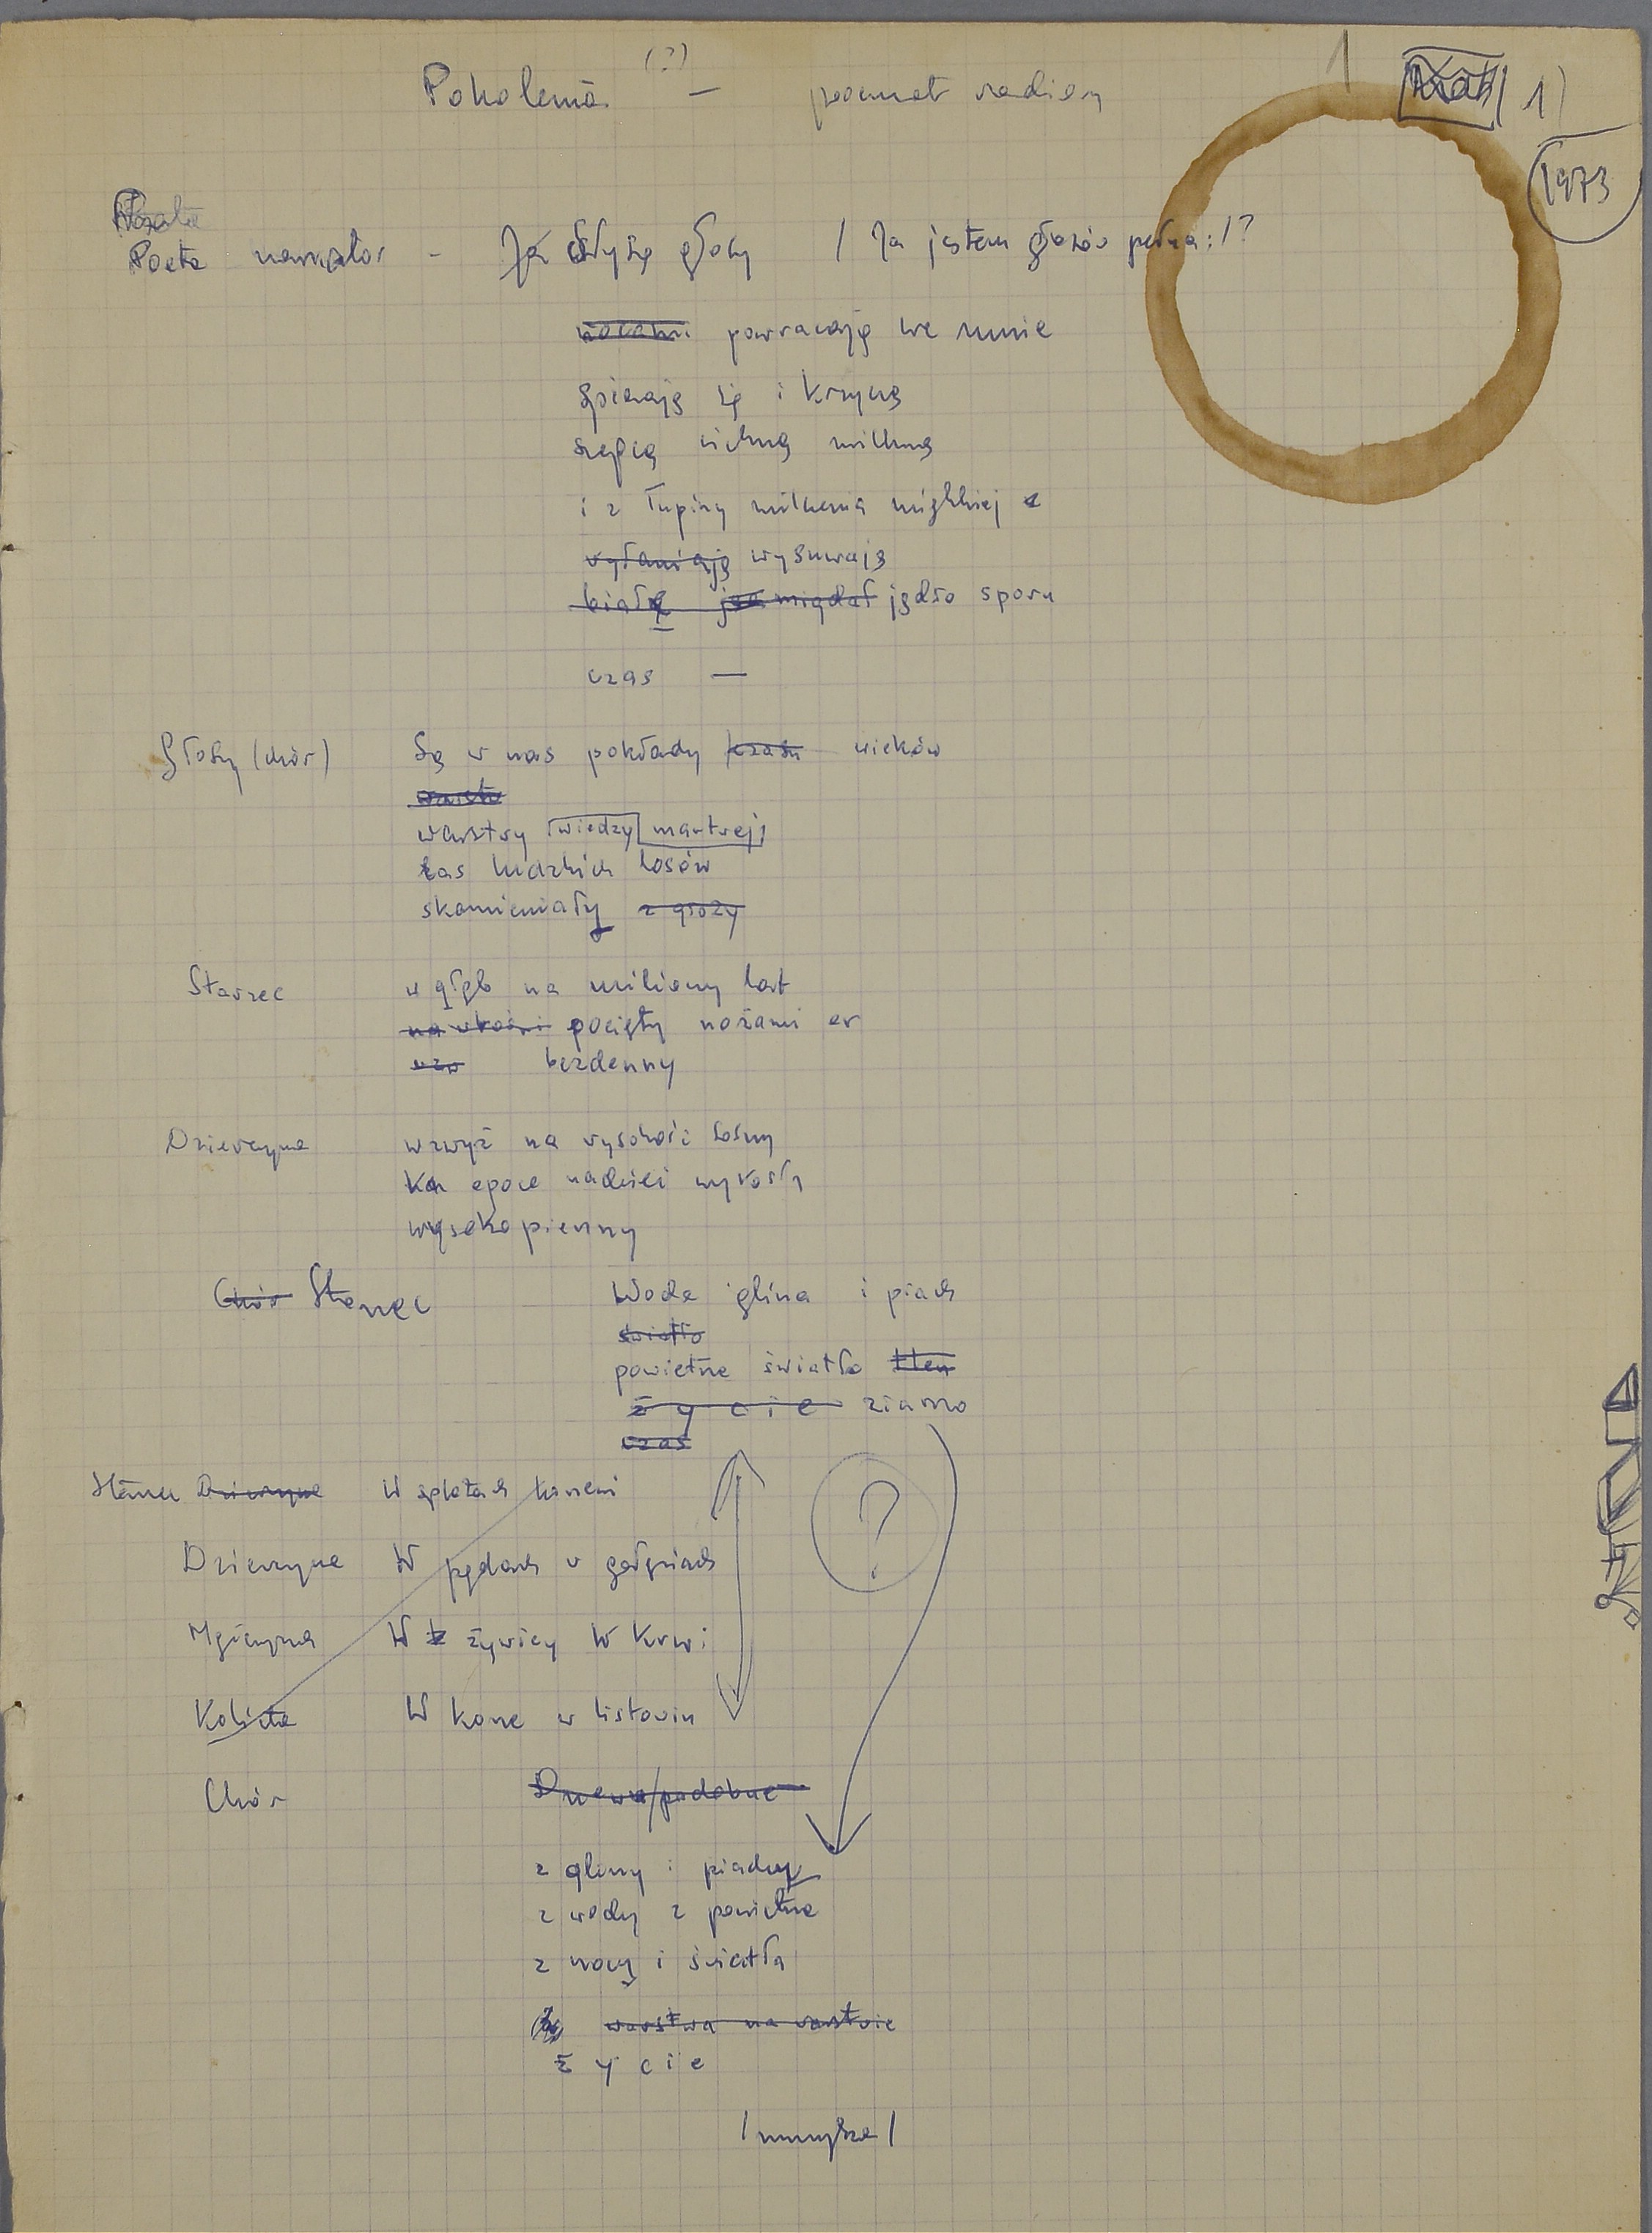 Pokolenia (?) — poemat radiowy
1
1)
1973
Poeta narrator - Ja słyszę głosy / Ja jestem głosów pełna: / ?
nocami powracają we mnie
spierają się i krzyczą
szepcą cichną milkną
i z łupiny milczenia miękkiej
wyłaniają wysuwają
białe jak migdał jądro sporu
czas —
Głosy (chór) Są w nas pokłady czasu wieków
warstw
warstwy wiedzy martwej
Las ludzkich losów
skamieniały z grozy
Starzec w głąb na miliony lat
pocięty nożami er
bezdenny
Dziewczyna wzwyż na wysokość sosny
Ku epoce nadziei wyrosły
wysokopienny
Chór Starzec Woda glina i piach
światło
powietrze światło tlen
życie ziarno
czas
Starzec Dziewczyna W splotach korzeni
Dziewczyna W pędach w gałęziach
?
Mężczyzna W żywicy W krwi
Kobieta W korze w listowiu
Chór Drzewu/podobne
z gliny i piachu
z wody z powietrza
z nocy i światła
warstwa na warstwie
życie
/ muzyka /